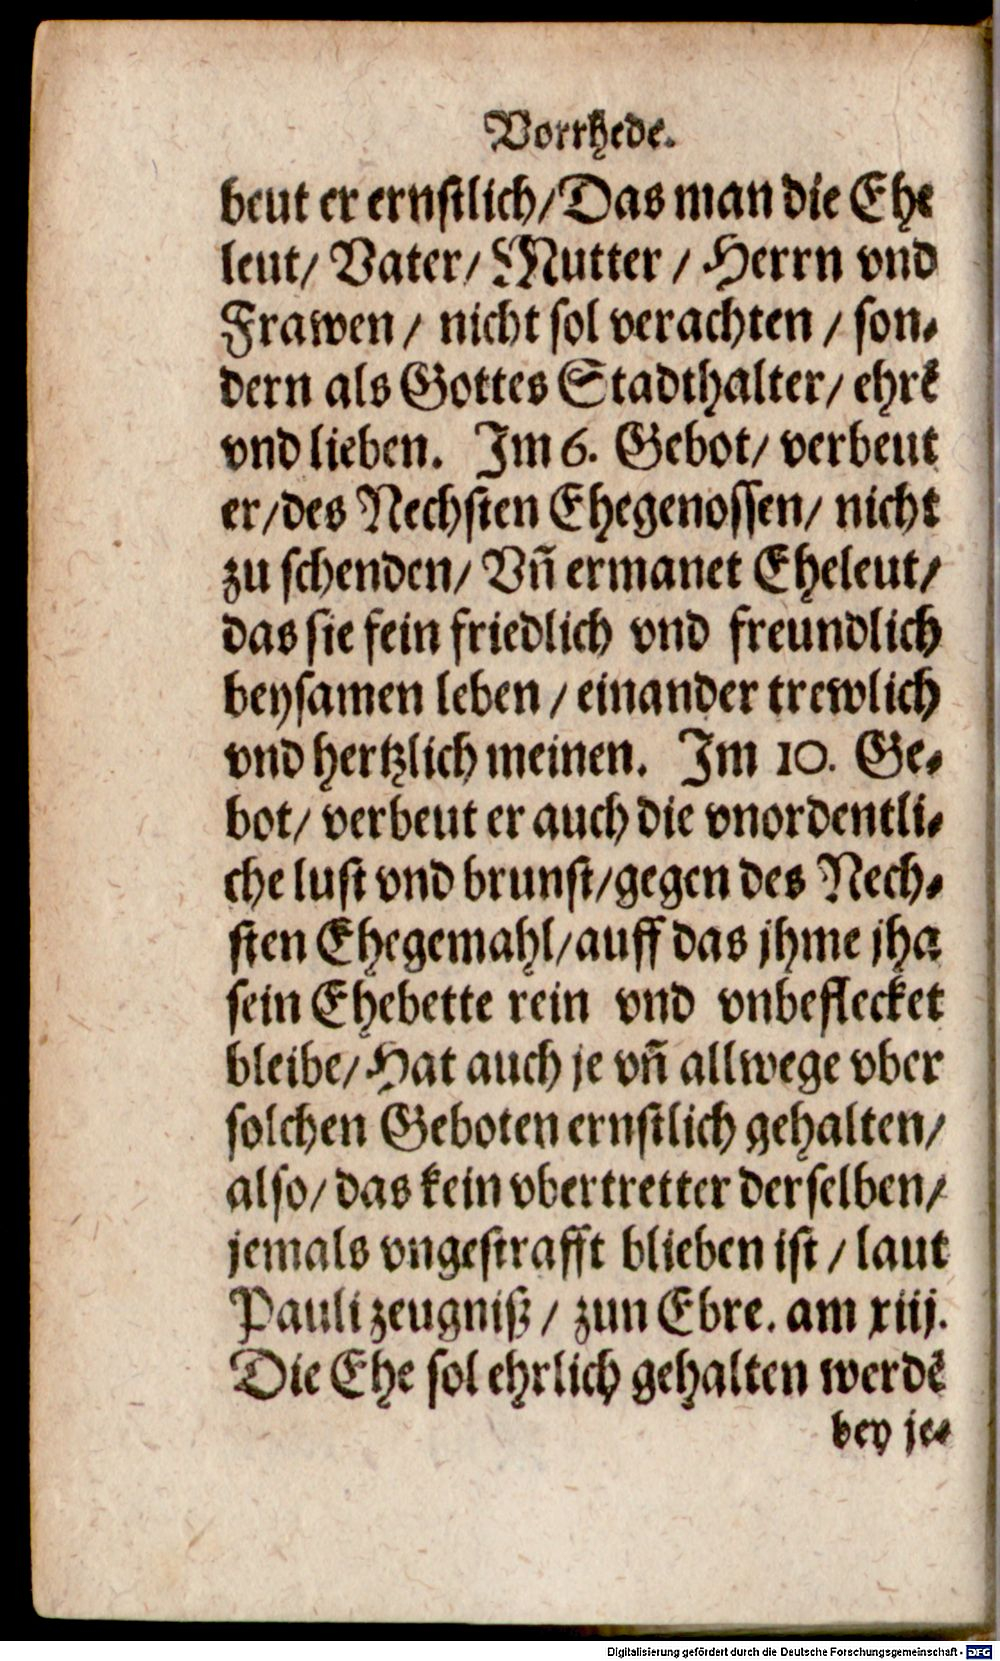 Vorrhede.
beut er ernstlich/ Das man die Ehe
leut/ Vater/ Mutter / Herrn vnd
Frawen / nicht sol verachten / son-
dern als Gottes Stadthalter/ ehrē
vnd lieben. Im 6. Gebot/ verbeut
er/des Nechsten Ehegenossen/ nicht
zu schenden/ Vñ ermanet Eheleut/
das sie fein friedlich vnd freundlich
beysamen leben / einander trewlich
vnd hertzlich meinen. Im 10. Ge-
bot/ verbeut er auch die vnordentli-
che lust vnd brunst/gegen des Nech-
sten Ehegemahl/auff das jhme jha
sein Ehebette rein vnd vnbeflecket
bleibe/ Hat auch je vñ allwege vber
solchen Geboten ernstlich gehalten/
also/ das kein vbertretter derselben/
jemals vngestrafft blieben ist / laut
Pauli zeugniß / zun Ebre. am xiij.
Die Ehe sol ehrlich gehalten werdē
bey je-
Digitalisierung gefördert durch die Deutsche Forschungsgemeinschaft - DFG